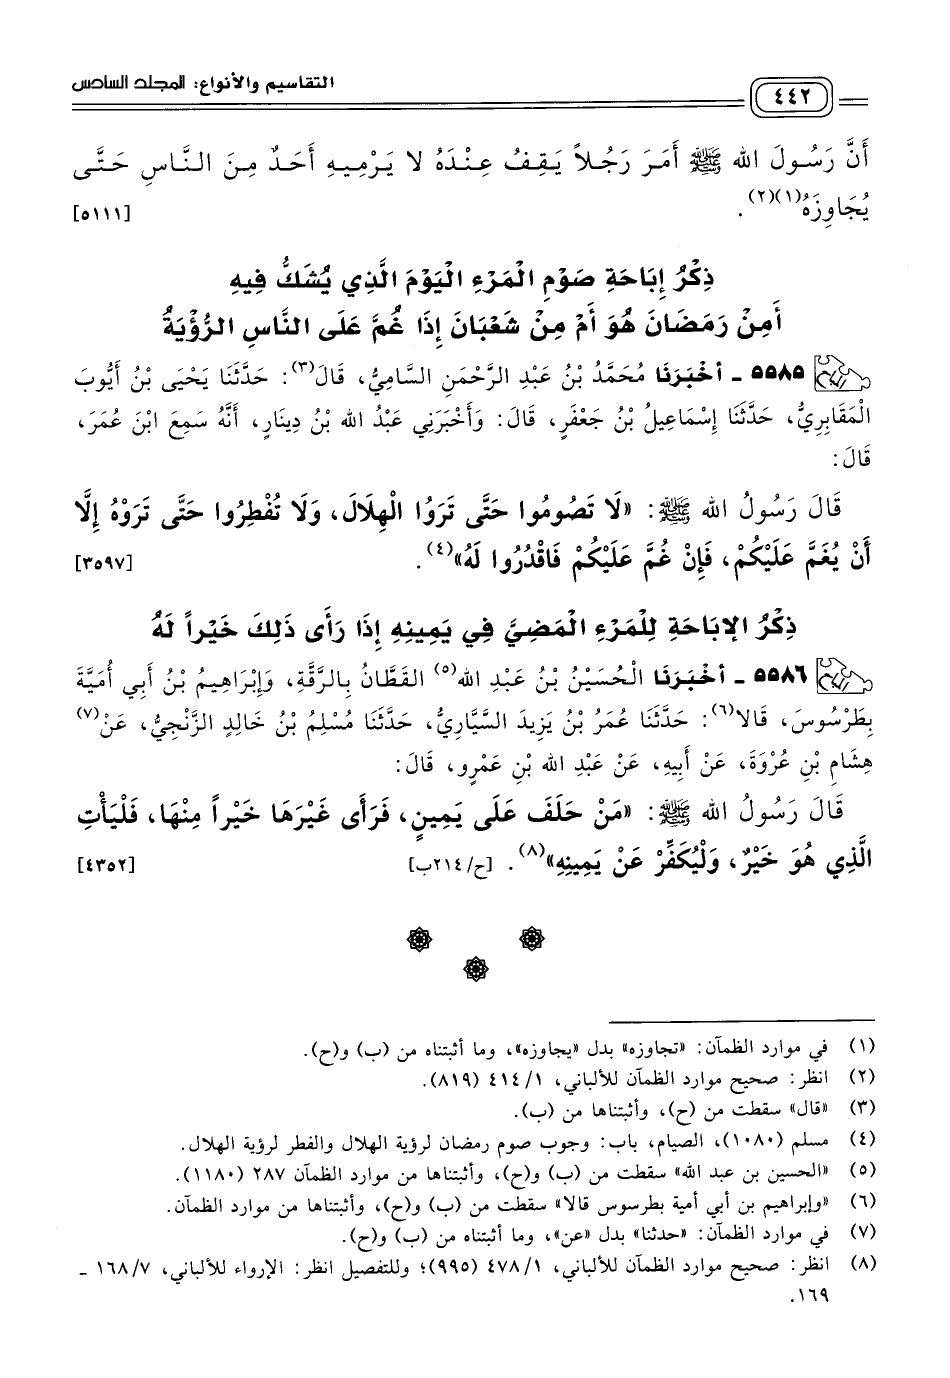 ٤٤٢
التقاسيم والأنواع: المجلد السادس
أَنَّ رَسُولَ الله ﷺ أَمَرَ رَجُلاً يَقِفُ عِنْدَهُ لا يَرْمِيهِ أَحَدٌ مِنَ النَّاسِ حَتَّى
يُجَاوِزَهُ(١)(٢). [٥١١١]
ذِكْرُ إِبَاحَةِ صَوْمِ الْمَرْءِ الْيَوْمَ الَّذِي يُشَكُّ فِيهِ
أَمِنْ رَمَضَانَ هُوَ أَمْ مِنْ شَعْبَانَ إِذَا غُمَّ عَلَى النَّاسِ الرُّؤْيَةُ
٥٥٨٥ ـ أَخْبَرَنَا مُحَمَّدُ بْنُ عَبْدِ الرَّحْمَنِ السَّامِيُّ، قَالَ(٣): حَدَّثَنَا يَحْيَى بْنُ أَيُّوبَ
الْمَقَابِرِيُّ، حَدَّثَنَا إِسْمَاعِيلُ بْنُ جَعْفَرٍ، قَالَ: وَأَخْبَرَنِي عَبْدُ الله بْنُ دِينَارٍ، أَنَّهُ سَمِعَ ابْنَ عُمَرَ،
قَالَ:
قَالَ رَسُولُ الله ﷺ: «لَا تَصُومُوا حَتَّى تَرَوُا الْهِلَالَ، وَلَا تُفْطِرُوا حَتَّى تَرَوْهُ إِلَّا
أَنْ يُغَمَّ عَلَيْكُمْ، فَإِنْ غُمَّ عَلَيْكُمْ فَاقْدُرُوا لَهُ»(٤). [٣٥٩٧]
ذِكْرُ الإِبَاحَةِ لِلْمَرْءِ الْمَضِيَّ فِي يَمِينِهِ إِذَا رَأَى ذَلِكَ خَيْراً لَهُ
٥٥٨٦ ـ أَخْبَرَنَا الْحُسَيْنُ بْنُ عَبْدِ الله(٥) الْقَطَّانُ بِالرَّقَّةِ، وَإِبْرَاهِيمُ بْنُ أَبِي أُمَيَّةَ
بِطَرْسُوسَ، قَالا(٦): حَدَّثَنَا عُمَرُ بْنُ يَزِيدَ السَّيَّارِيُّ، حَدَّثَنَا مُسْلِمُ بْنُ خَالِدٍ الزَّنْجِيُّ، عَنْ(٧)
هِشَامِ بْنِ عُرْوَةَ، عَنْ أَبِيهِ، عَنْ عَبْدِ الله بْنِ عَمْرٍو، قَالَ:
قَالَ رَسُولُ الله ﷺ: «مَنْ حَلَفَ عَلَى يَمِينٍ، فَرَأَى غَيْرَهَا خَيْراً مِنْهَا، فَلْيَأْتِ
الَّذِي هُوَ خَيْرٌ، وَلْيُكَفِّرْ عَنْ يَمِينِهِ»(٨). [ح/٢١٤ب] [٤٣٥٢]
(١) في موارد الظمآن: «تجاوزه» بدل «يجاوزه»، وما أثبتناه من (ب) و(ح).
(٢) انظر: صحيح موارد الظمآن للألباني، ٤١٤/١ (٨١٩).
(٣) «قال» سقطت من (ح)، وأثبتناها من (ب).
(٤) مسلم (١٠٨٠)، الصيام، باب: وجوب صوم رمضان لرؤية الهلال والفطر لرؤية الهلال.
(٥) «الحسين بن عبد الله» سقطت من (ب) و(ح)، وأثبتناها من موارد الظمآن ٢٨٧ (١١٨٠).
(٦) «وإبراهيم بن أبي أمية بطرسوس قالا» سقطت من (ب) و(ح)، وأثبتناها من موارد الظمآن.
(٧) في موارد الظمآن: «حدثنا» بدل «عن»، وما أثبتناه من (ب) و(ح).
(٨) انظر: صحيح موارد الظمآن للألباني، ٤٧٨/١ (٩٩٥)؛ وللتفصيل انظر: الإرواء للألباني، ١٦٨/٧ ـ
١٦٩.